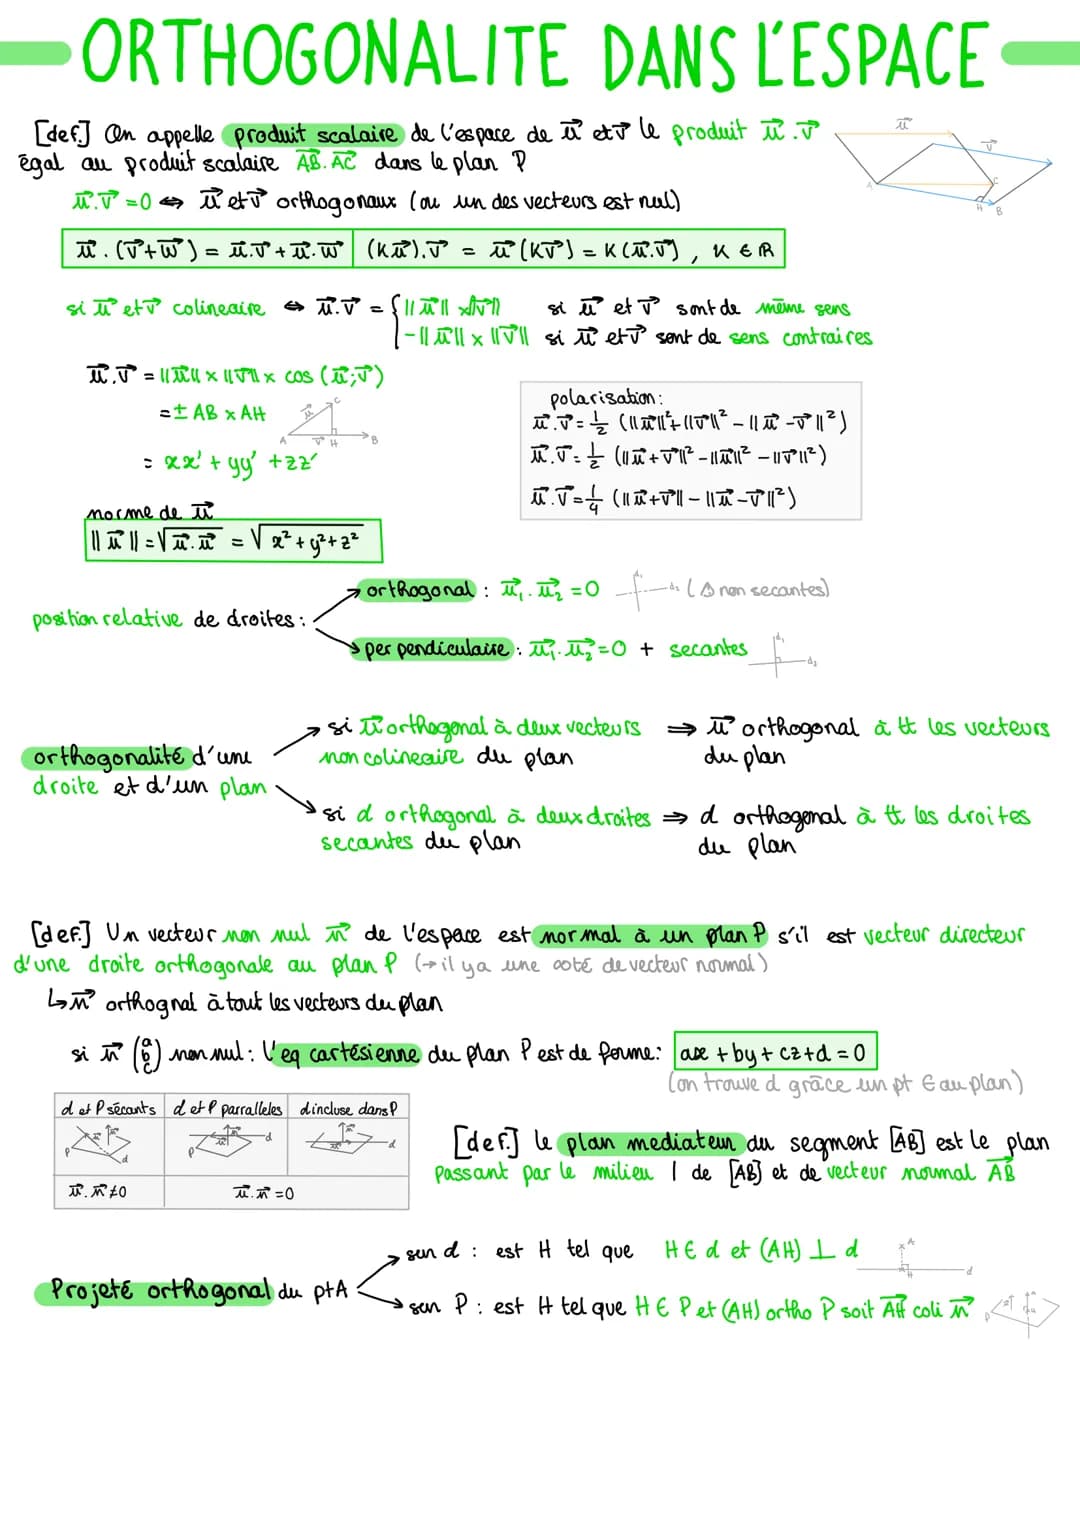 ORTHOGONALITE DANS L'ESPACE
[def.] On appelle produit scalaire de l'espace de u⃗ et v⃗ le produit u⃗.v⃗
égal au produit scalaire AB⃗.AC⃗ dans le plan P
u⃗.v⃗ = 0 ⇔ u⃗ et v⃗ orthogonaux (ou un des vecteurs est nul)
u⃗.(v⃗+w⃗) = u⃗.v⃗ + u⃗.w⃗ (Ku⃗).v⃗ = u⃗(Kv⃗) = K(u⃗.v⃗), K ∈ ℝ
si u⃗ et v⃗ colineaire ⇔ u⃗.v⃗ = { ||u⃗|| x ||v⃗|| si u⃗ et v⃗ sont de même sens
-||u⃗|| x ||v⃗|| si u⃗ et v⃗ sont de sens contraires
u⃗.v⃗ = ||u⃗|| x ||v⃗|| x cos (u⃗;v⃗)
= ± AB x AH
= xx' + yy' + zz'
polarisation:
u⃗.v⃗ = 1/2 (||u⃗||² + ||v⃗||² - ||u⃗-v⃗||²)
u⃗.v⃗ = 1/2 (||u⃗+v⃗||² - ||u⃗||² - ||v⃗||²)
u⃗.v⃗ = 1/4 (||u⃗+v⃗|| - ||u⃗-v⃗||²)
norme de u⃗
||u⃗|| = √u⃗.u⃗ = √x²+y²+z²
position relative de droites:
orthogonal : u⃗₁.u⃗₂ = 0 d₁ d₂ (⚠ non secantes)
perpendiculaire : u⃗₁.u⃗₂ = 0 + secantes d₁ d₂
orthogonalité d'une
droite et d'un plan
si u⃗ orthogonal à deux vecteurs ⇒ u⃗ orthogonal à tt les vecteurs
non colineaire du plan du plan
si d orthogonal à deux droites ⇒ d orthogonal à tt les droites
secantes du plan du plan
[def.] Un vecteur non nul n⃗ de l'espace est normal à un plan P s'il est vecteur directeur
d'une droite orthogonale au plan P (→ il y a une ∞té de vecteur normal)
↳ n⃗ orthognal à tout les vecteurs du plan
si n⃗ (a b c) non nul : l'eq cartésienne du plan P est de forme: ax + by + cz + d = 0
(on trouve d grâce un pt ∈ au plan)
d et P sécants d et P parralleles d incluse dans P
u⃗.n⃗ ≠ 0 u⃗.n⃗ = 0
[def.] le plan mediateur du segment [AB] est le plan
passant par le milieu I de [AB] et de vecteur normal AB⃗
Projeté orthogonal du pt A
sur d : est H tel que H ∈ d et (AH) ⊥ d
sur P : est H tel que H ∈ P et (AH) ortho P soit AH⃗ coli n⃗